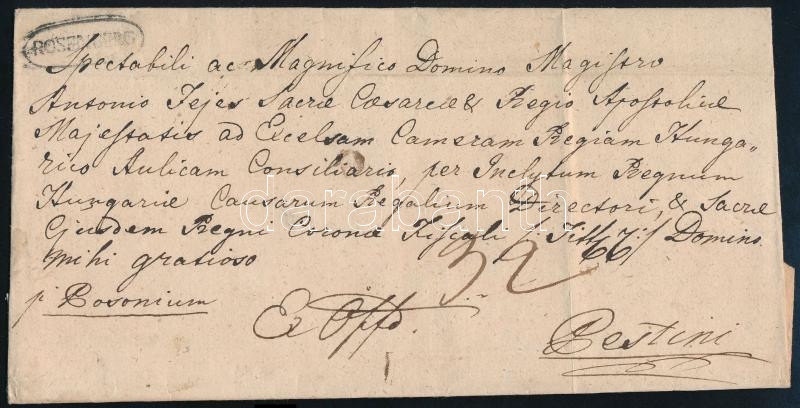 ROSENBERG
Spectabili ac Magnifico Domino Magistro
Antonio Fejes Sacræ Cæsareæ & Regio Apostolicæ
Majestatis ad Excelsam Cameram Regiam Hunga„
rico Aulicam Consiliario, per Inclytum Regnum
Hungariæ Causarum Regalium Directori, & Sacræ
Ejusdem Regni Coronæ Fiscali /: Titt :/ Domino
mihi gratioso
32
p Posonium
Ex Offo.
Pestini
darabanth